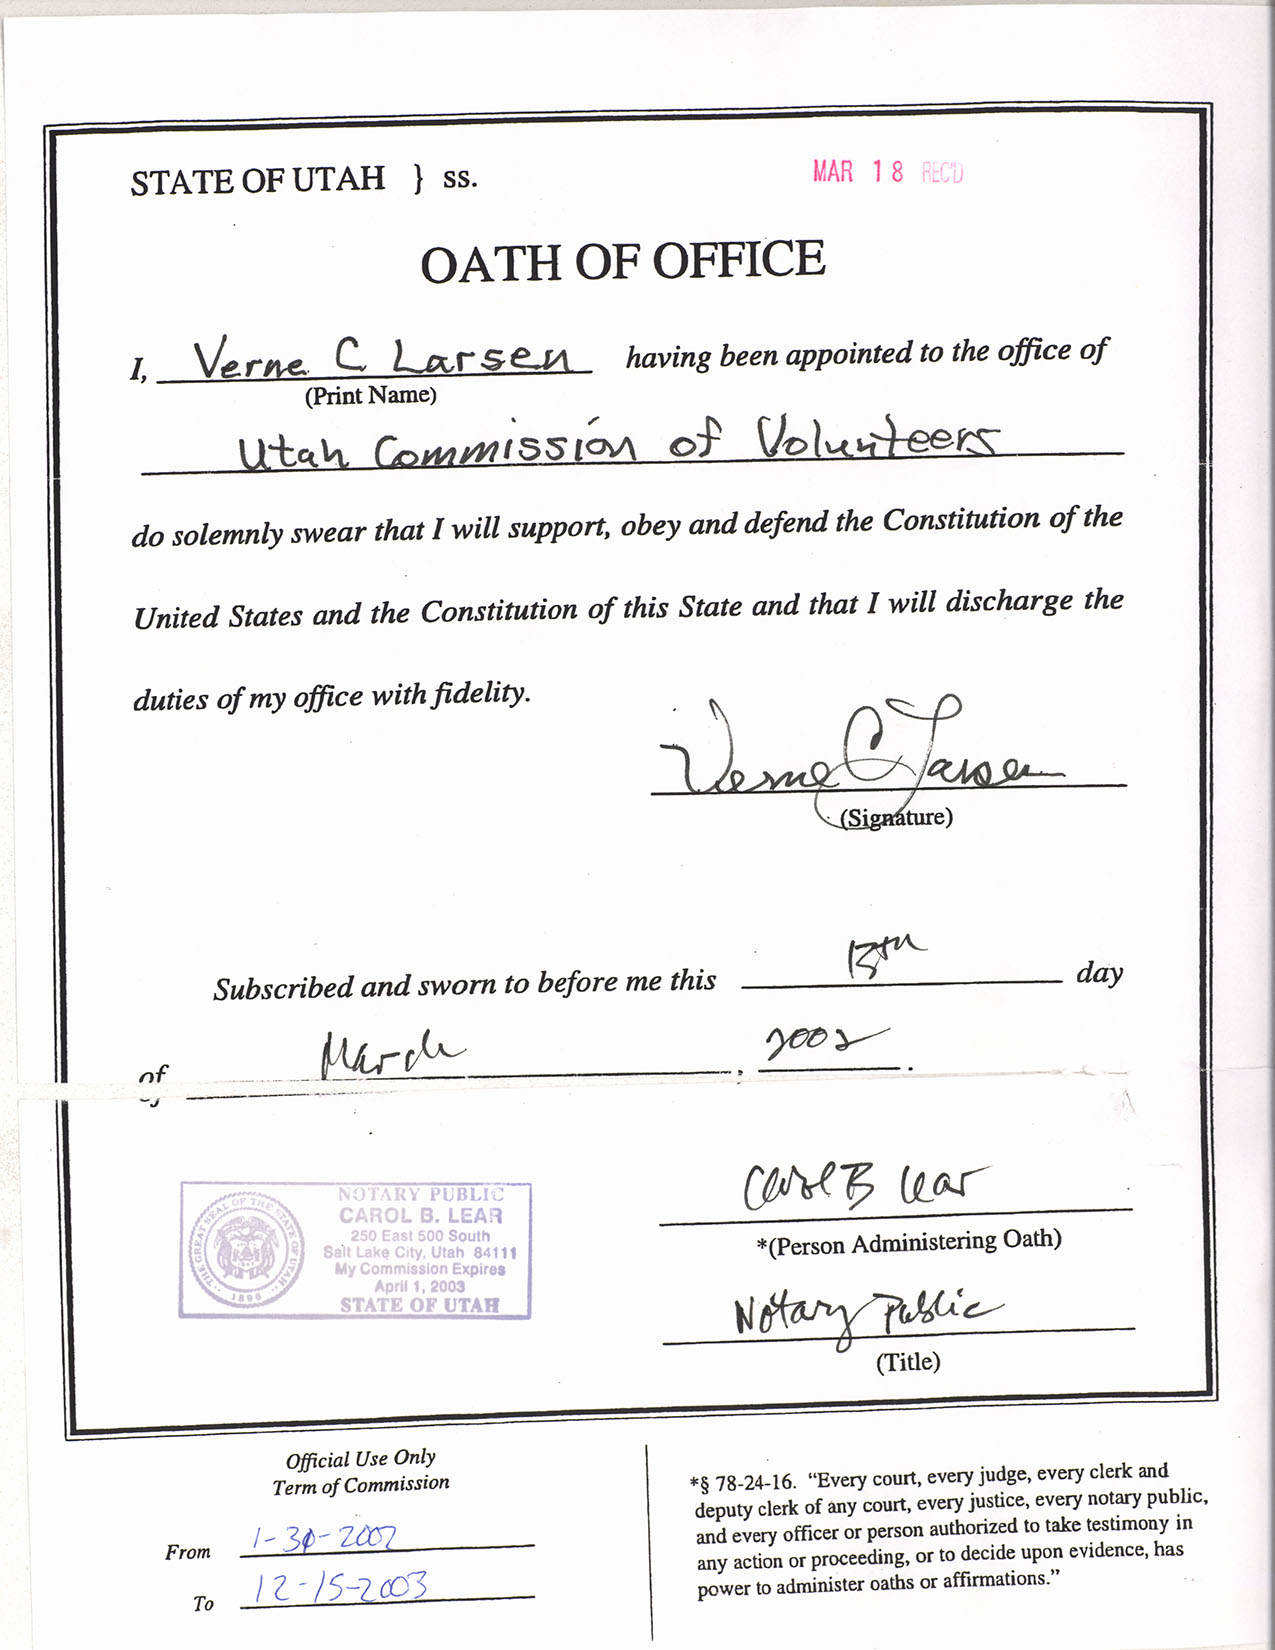 STATE OF UTAH } ss.
MAR 18 REC'D
OATH OF OFFICE
I, Verne C Larsen having been appointed to the office of
(Print Name)
Utah Commission of Volunteers
do solemnly swear that I will support, obey and defend the Constitution of the
United States and the Constitution of this State and that I will discharge the
duties of my office with fidelity.
Verne C Larsen
(Signature)
Subscribed and sworn to before me this day
of March, 2002.
NOTARY PUBLIC
CAROL B. LEAR
250 East 500 South
Salt Lake City, Utah 84111
My Commission Expires
April 1, 2003
STATE OF UTAH
THE GREAT SEAL OF THE STATE OF UTAH
1896
Carol B Lear
*(Person Administering Oath)
Notary Public
(Title)
Official Use Only
Term of Commission
From 1-30-2002
To 12-15-2003
*§ 78-24-16. “Every court, every judge, every clerk and
deputy clerk of any court, every justice, every notary public,
and every officer or person authorized to take testimony in
any action or proceeding, or to decide upon evidence, has
power to administer oaths or affirmations.”